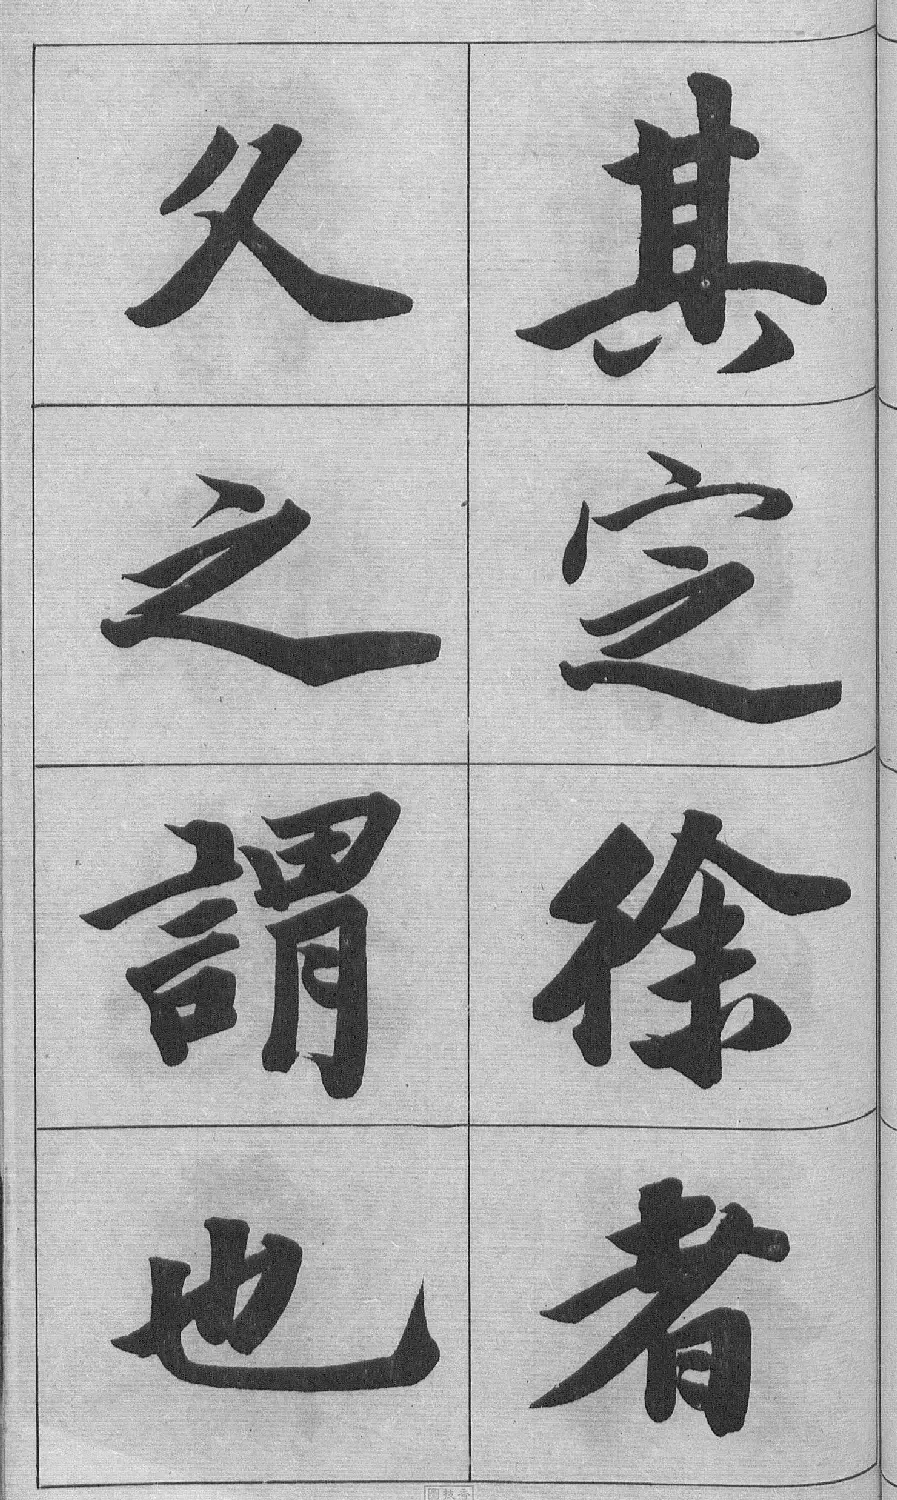 其定徐者
久之謂也